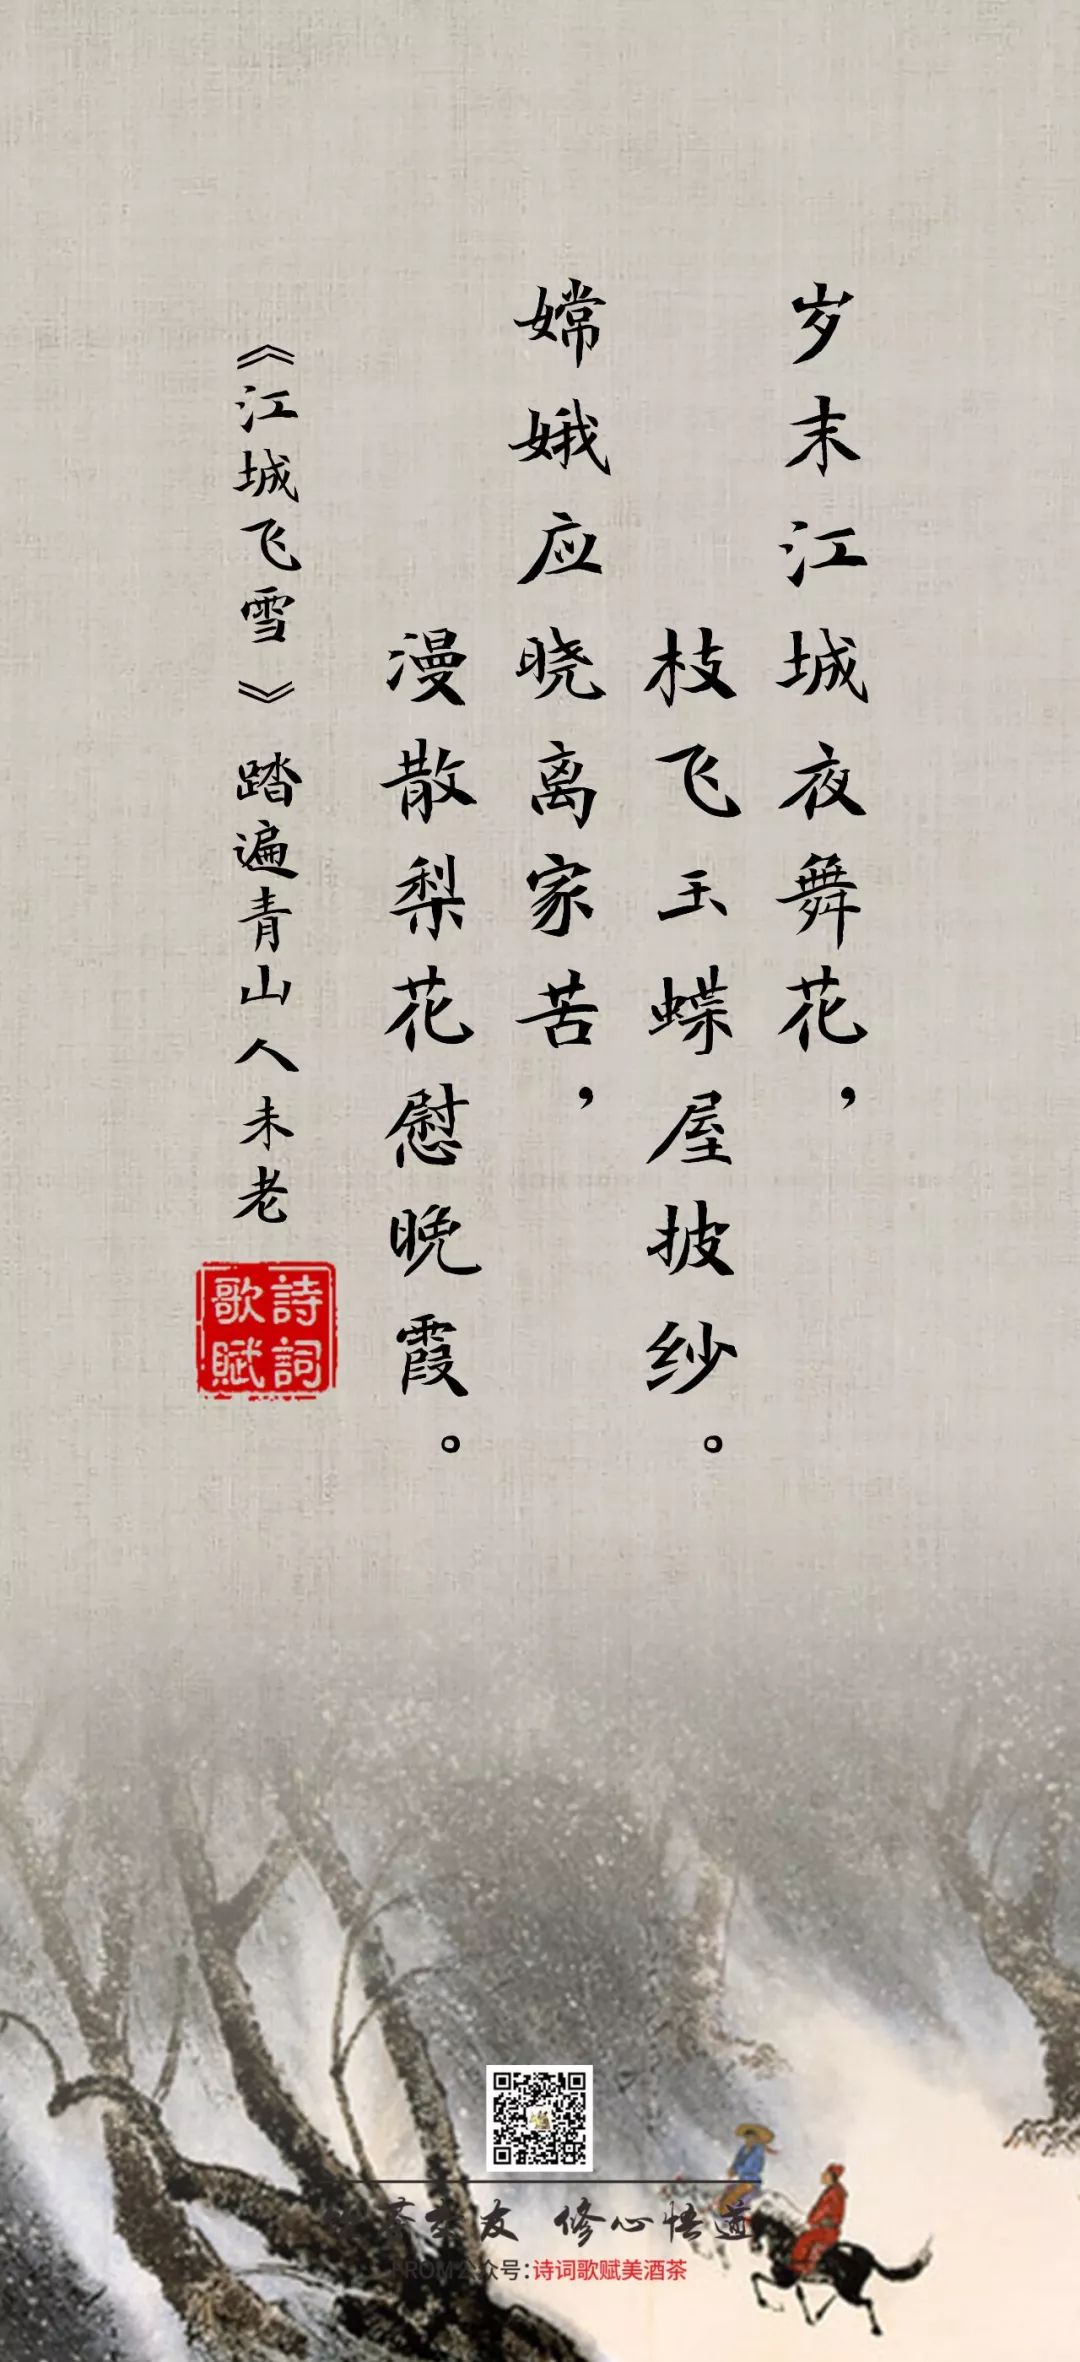 岁末江城夜舞花，
枝飞玉蝶屋披纱。
嫦娥应晓离家苦，
漫散梨花慰晚霞。
《江城飞雪》踏遍青山人未老
詩詞
歌賦
茶交友 修心悟道
FROM公众号:诗词歌赋美酒茶